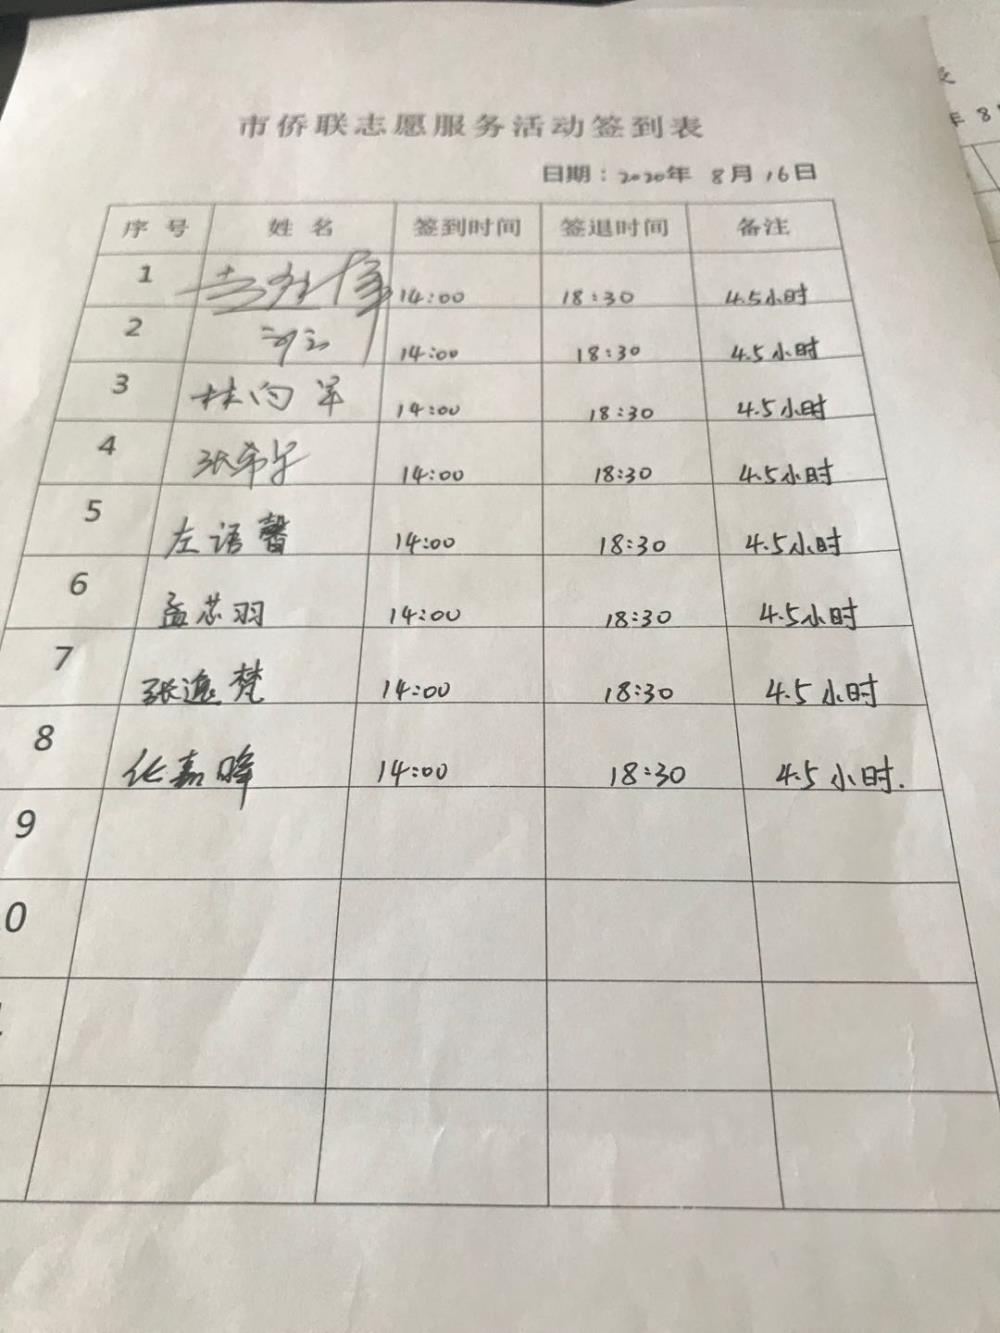 市侨联志愿服务活动签到表
日期：2020年 8月 16日
序号 姓名 签到时间 签退时间 备注
1 14:00 18:30 4.5小时
2 14:00 18:30 4.5小时
3 林向军 14:00 18:30 4.5小时
4 张希 14:00 18:30 4.5小时
5 左语馨 14:00 18:30 4.5小时
6 孟芯羽 14:00 18:30 4.5小时
7 张逸梵 14:00 18:30 4.5小时
8 化嘉晖 14:00 18:30 4.5小时.
9
0
年 8